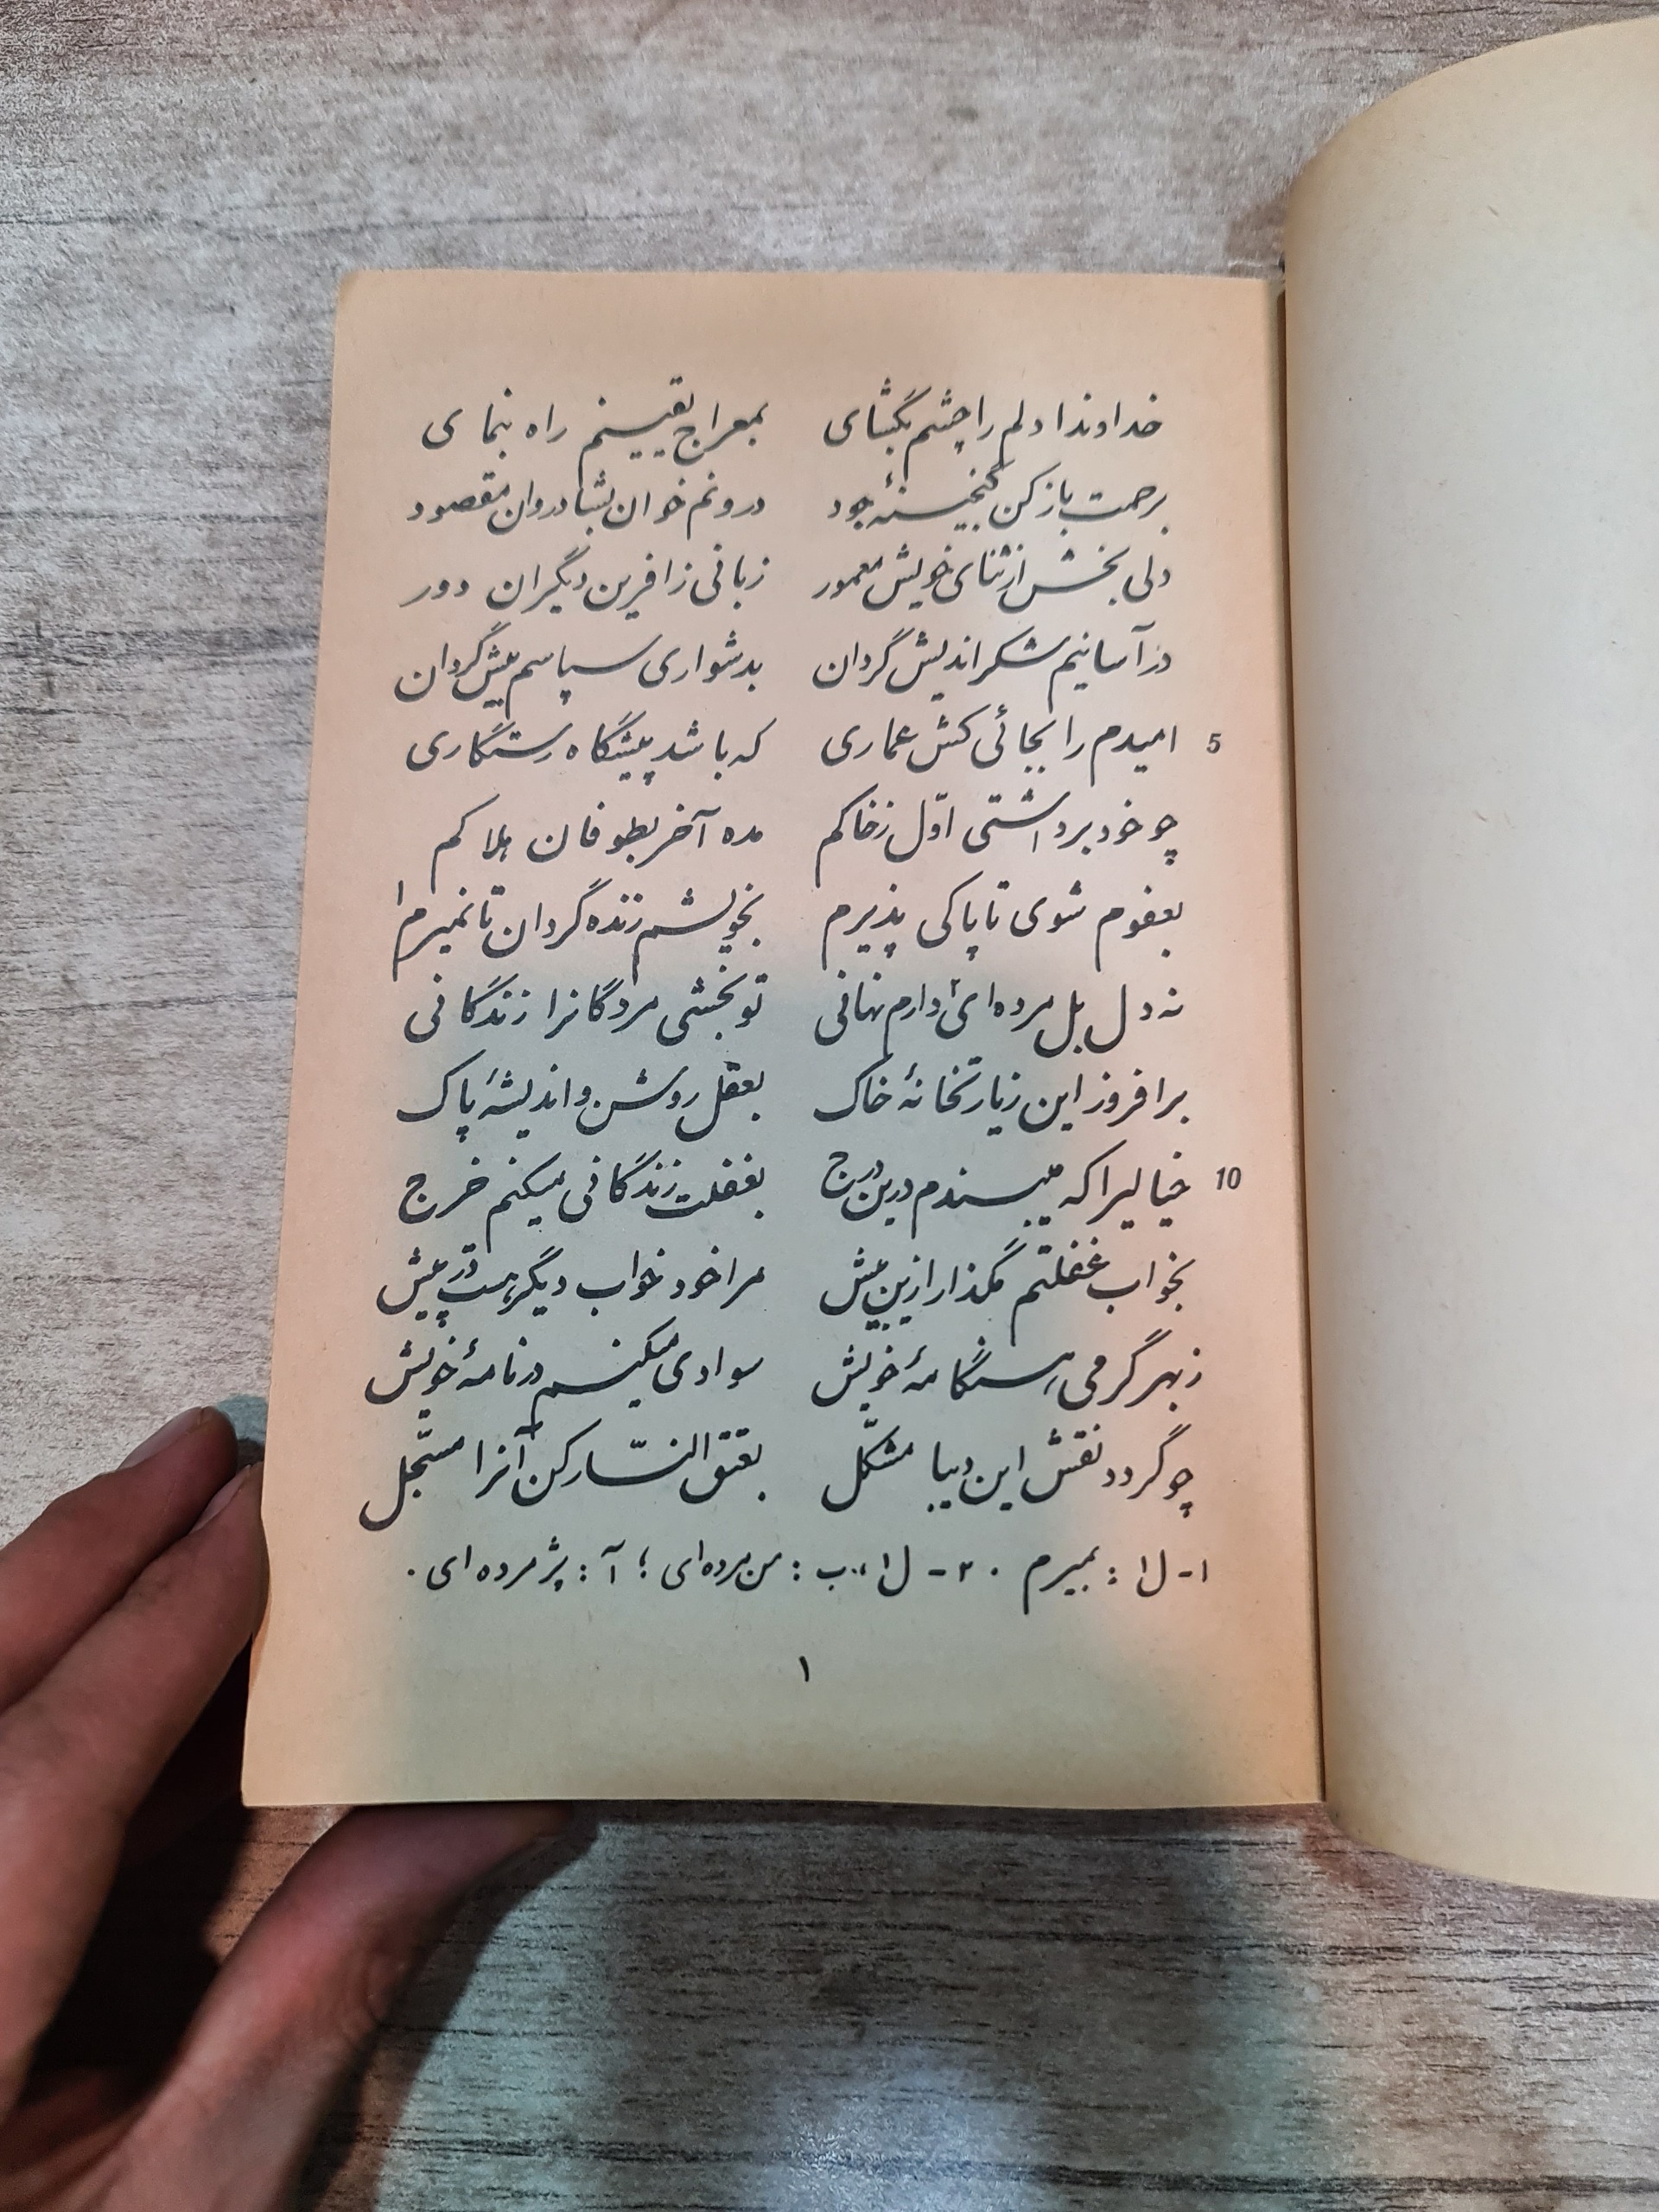 خداوندا دلم را چشم بگشای بمعراج یقینم راه بنمای
برحمت باز کن گنجینهٔ جود درونم خوان بشادروان مقصود
دلی بخش از ثنای خویش معمور زبانی زافرین دیگران دور
در آسانیم شکر اندیش گردان بدشواری سپاسم بیش گردان
5 امیدم را بجائی کش عماری که باشد پیشگاه رستگاری
چو خود برداشتی اوّل ز خاکم مده آخر بطوفان هلاکم
بعفوم شوی تا پاکی پذیرم بخویشم زنده گردان تا نمیرم ۱
نه دل بل مرده‌ای دارم نهانی تو بخشی مردگانرا زندگانی
برافروز این زیارتخانهٔ خاک بعقل روشن و اندیشهٔ پاک
10 خیالیرا که میبندم درین درج بغفلت زندگانی میکنم خرج
بخواب غفلتم مگذار ازین بیش مرا خود خواب دیگر هست در پیش
ز بهر گرمی هنگامهٔ خویش سوادی میکنم در نامهٔ خویش
چو گردد نقش این دیبا مشکّل بعتق النّار کن آنرا مسجّل
۱- ل۱: بمیرم . ۲- ل۱، ب: من مرده‌ای ؛ آ: پژمرده‌ای .
۱